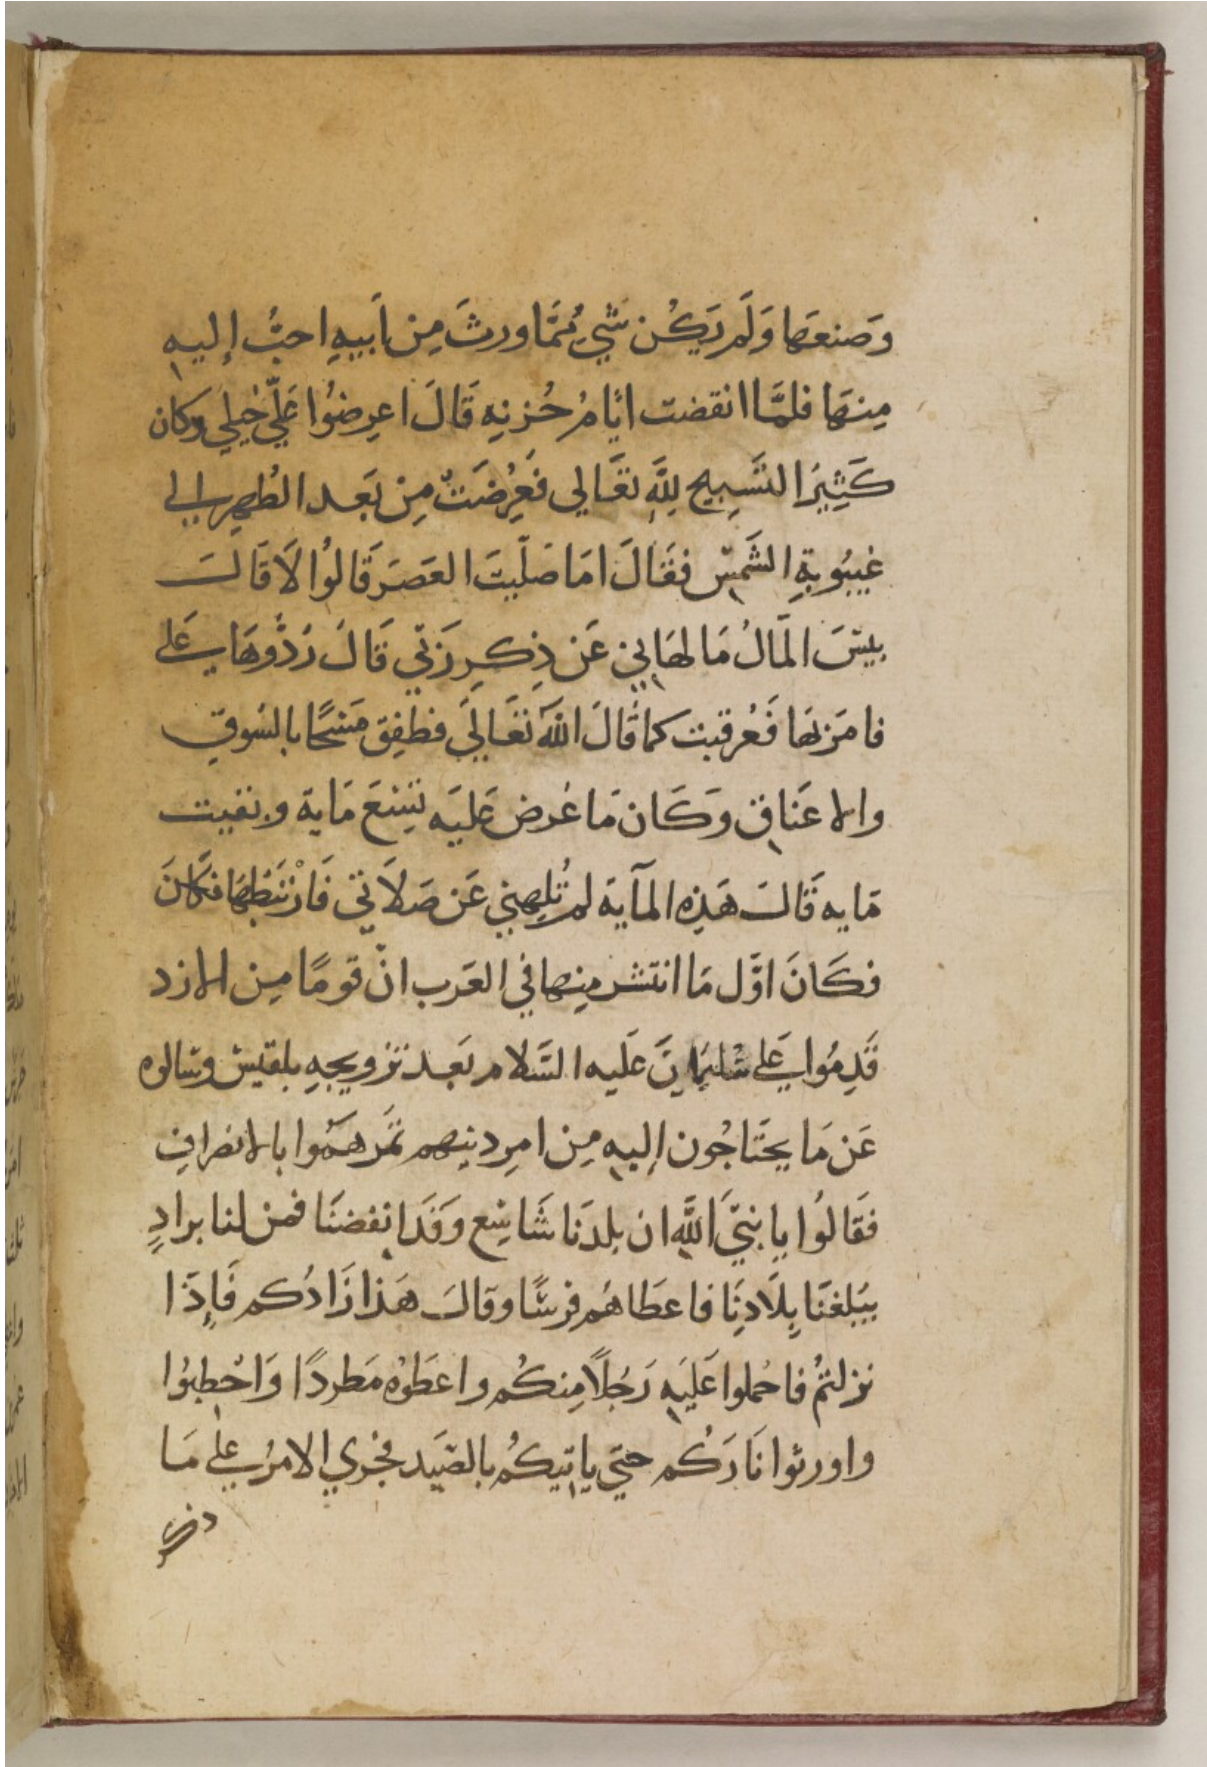 وَصنعَها وَلَم يَكُن شيٌ مِمَّا ورثَ مِن اَبيهِ احبُّ إليهِ
مِنهَا فلمَّا انقضت ايّامُ حُزنِهِ قَالَ اعرِضوُا عَليَّ خيلِي وكان
كَثِيرَ التسَبِيح لِلَّهِ تعَالي فَعُرِضَتْ مِن بَعد الظُهرِ إلي
غيبُوبةِ الشَمسِ فقَالَ امَا صَلّيتَ العَصَر قَالوُا لَا قَالَ
بيسَ المَالُ مَا لهَانِي عَن ذِكرِ رَبّي قَالَ رُدُّوهَا عَلي
فامَر بهَا فَعُرقبت كما قَالَ اللهَ تعَاليَ فطَفِق مَسْحًا بالسُوقِ
والاعنَاقِ وَكَان مَا عُرِض عَليَه تِسْعَ مَاية وبَقيت
مَايه قَالَ هَذِهِ المآية لم تُلهِني عَن صَلاَتي فَارْتَبَطَهَا فكَانَ
فكَانَ اوّل مَا انتشر مِنها في العَرب انّ قومًا مِن الازد
قَدِمُوا عَلي سُليمَانَ عَليه السَّلام بَعد تزويجهِ بلقيسَ وسَالوه
عَن مَا يحتَاجُون إليهِ مِن امرِ دِينِهم ثمَّ همَّوا بالانصَرافِ
فقَالوُا يا نبيَّ اللَّهِ ان بلدَنا شَاسِع وقَد انفضنَا فمن لنا برادٍ
يبَلغنَا بِلَادنَا فاعطَاهُم فرسًا وقالَ هَذا زَادُكم فَإذَا
نزلتمُ فاحمُلوا عَليَهِ رَجُلًا مِنكُم واعطَوْه مَطردًا وَاحْطِبوُا
واورثوا نَارَكُم حتيَ ياتيكُم بالصّيَد فجري الامرُ عَلي مَا